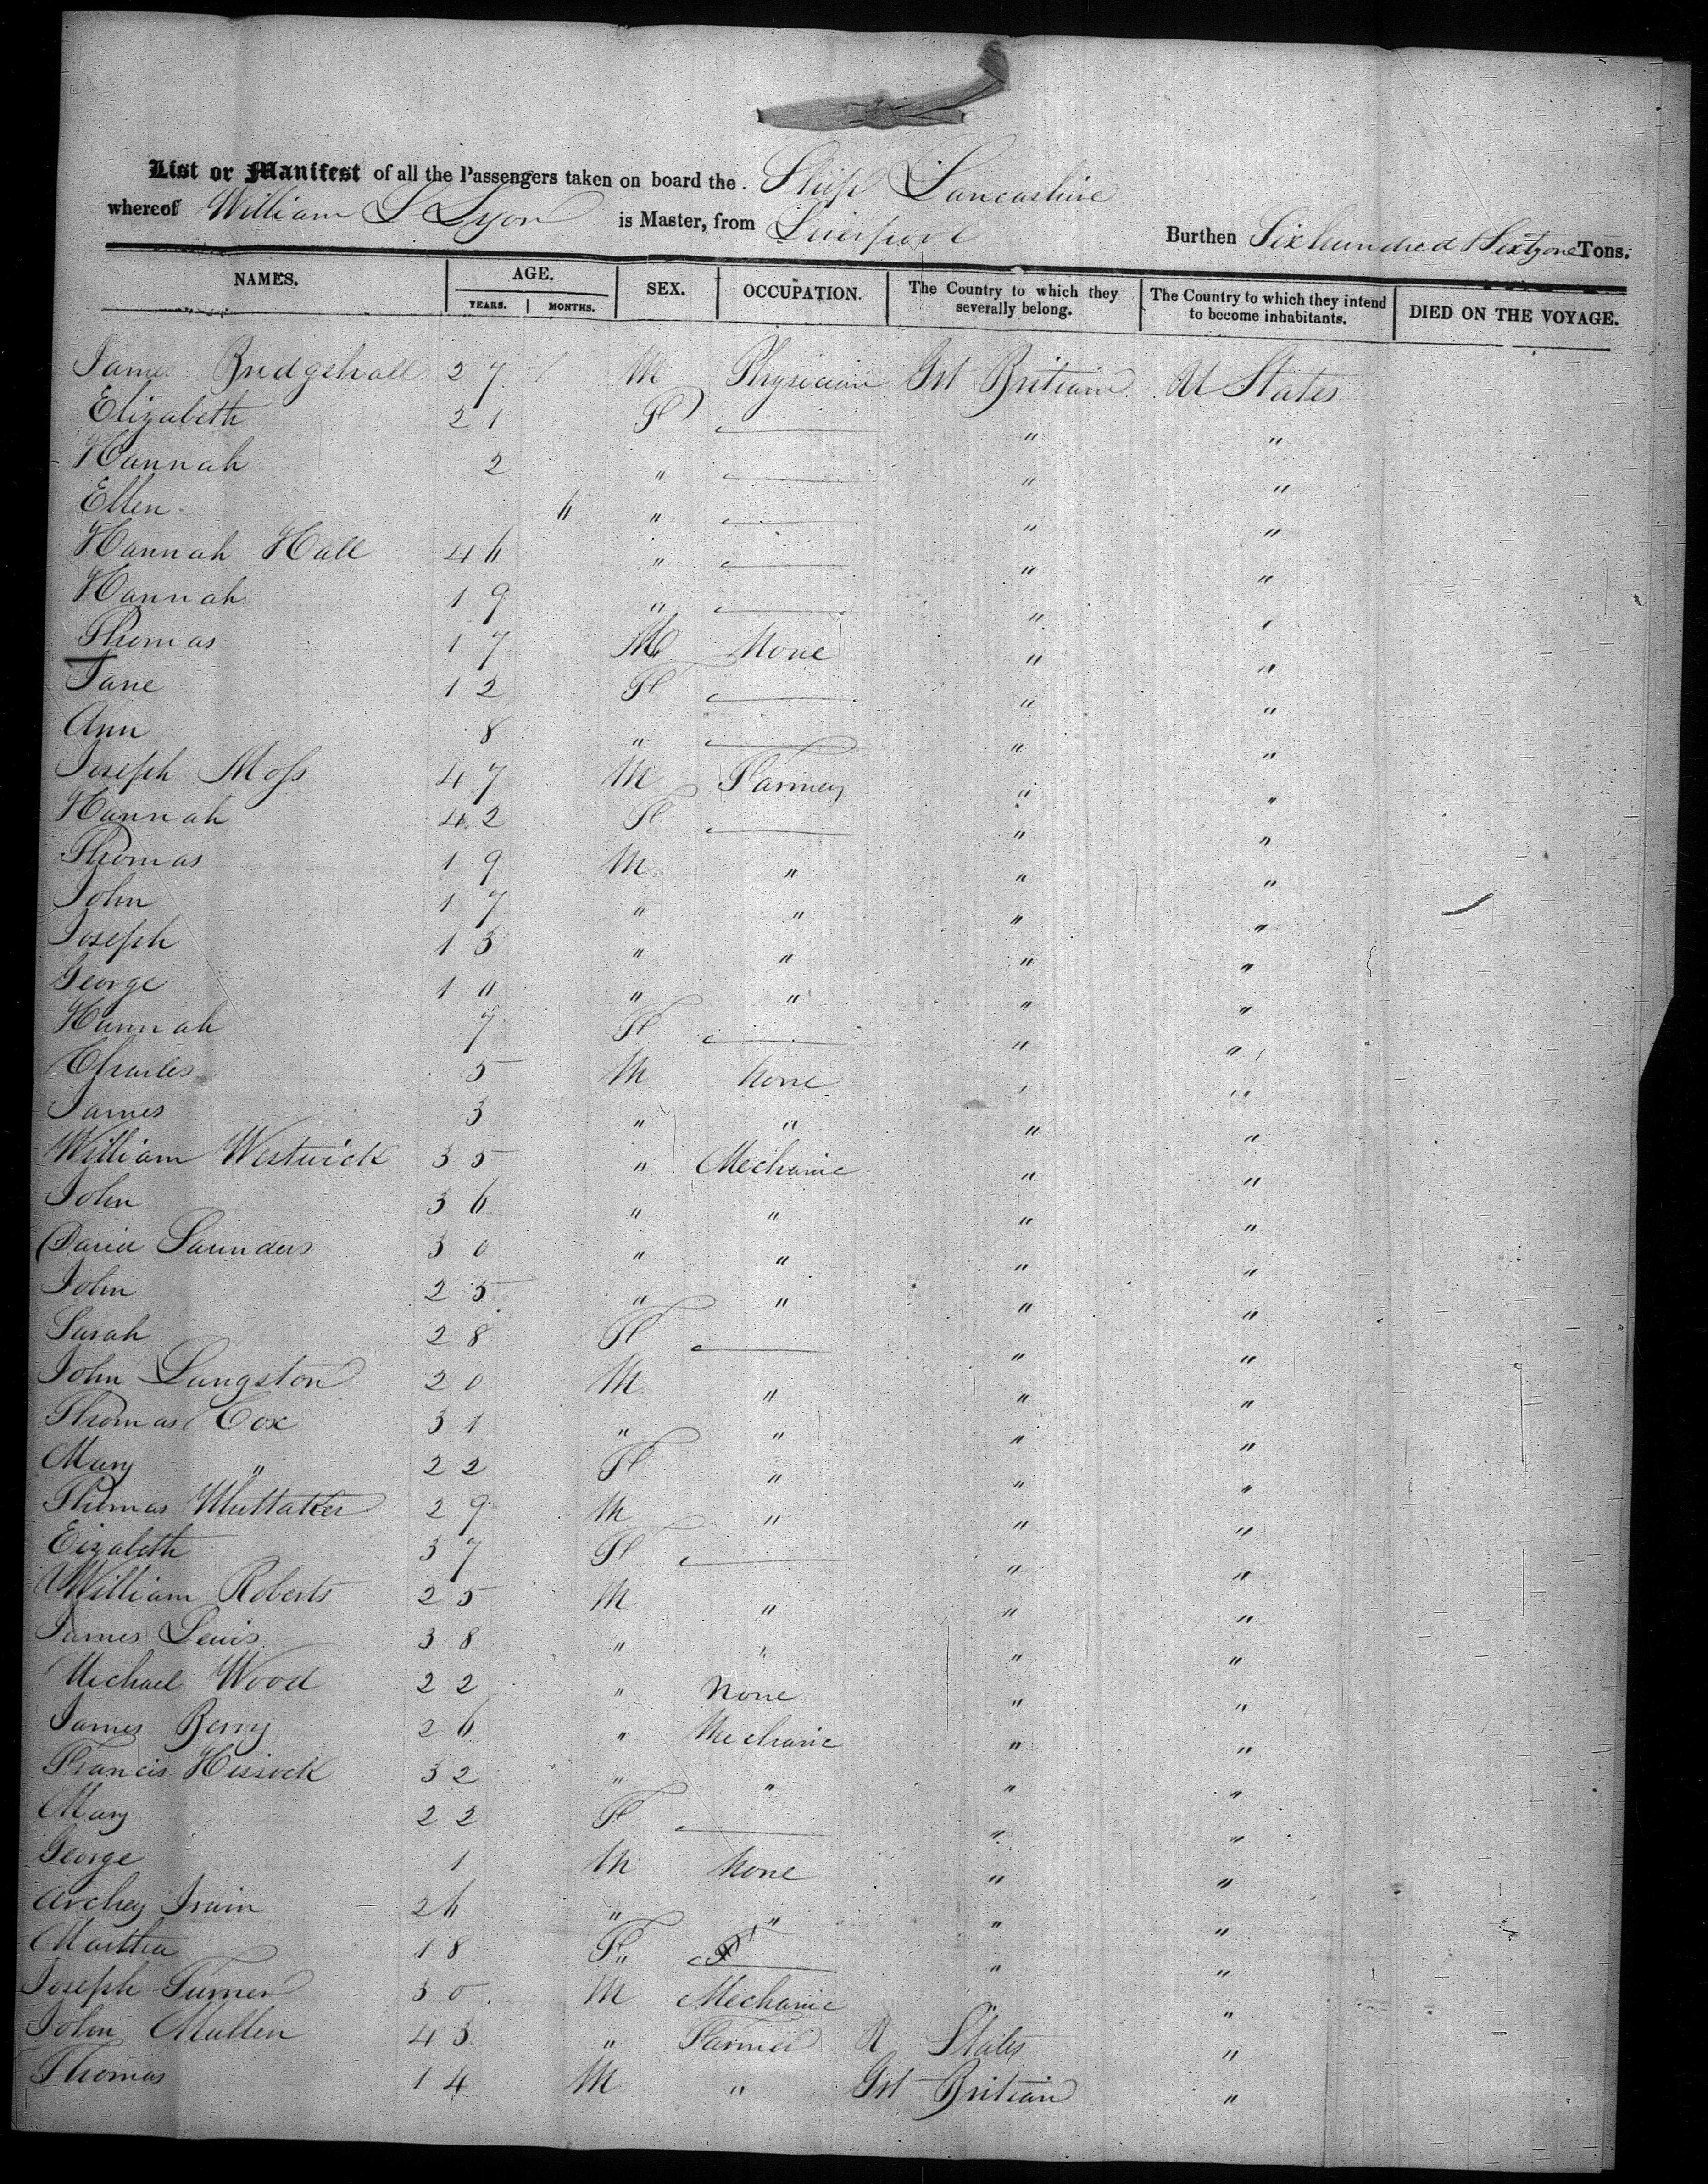 List or Manifest of all the Passengers taken on board the Ship Lancashire
whereof William S Lyon is Master, from Liverpool Burthen Six hundred & Sixty one Tons.
NAMES. AGE. SEX. OCCUPATION. The Country to which they severally belong. The Country to which they intend to become inhabitants. DIED ON THE VOYAGE.
YEARS. MONTHS.
James Bridgehall 27 M Physician Gt Britiain U States
Elizabeth 21 F " "
Hannah 2 " " "
Ellen 6 " " "
Hannah Hall 46 " " "
Hannah 19 " " "
Thomas 17 M None " "
Jane 12 F " "
Ann 8 " " "
Joseph Moss 47 M Farmer " "
Hannah 42 F " "
Thomas 19 M " " "
John 17 " " " "
Joseph 13 " " " "
George 10 " " " "
Hannah 7 F " "
Charles 5 M None " "
James 3 " " " "
William Westwick 35 " Mechanic " "
John 36 " " " "
David Saunders 30 " " " "
John 25 " " " "
Sarah 28 F " "
John Langston 20 M " " "
Thomas Cox 31 " " " "
Mary " 22 F " " "
Thomas Whittaker 29 M " " "
Eizabeth 37 F " "
William Roberts 25 M " " "
James Lewis 38 " " " "
Michael Wood 22 " None " "
James Berry 26 " Mechanic " "
Francis Hissock 32 " " " "
Mary 22 F " "
George 1 M None " "
Archey Irwin 26 " " " "
Martha 18 F " " "
Joseph Turner 30 M Mechanic "
John Mullen 43 " Farmer U States "
Thomas 14 M " Gt Britian "